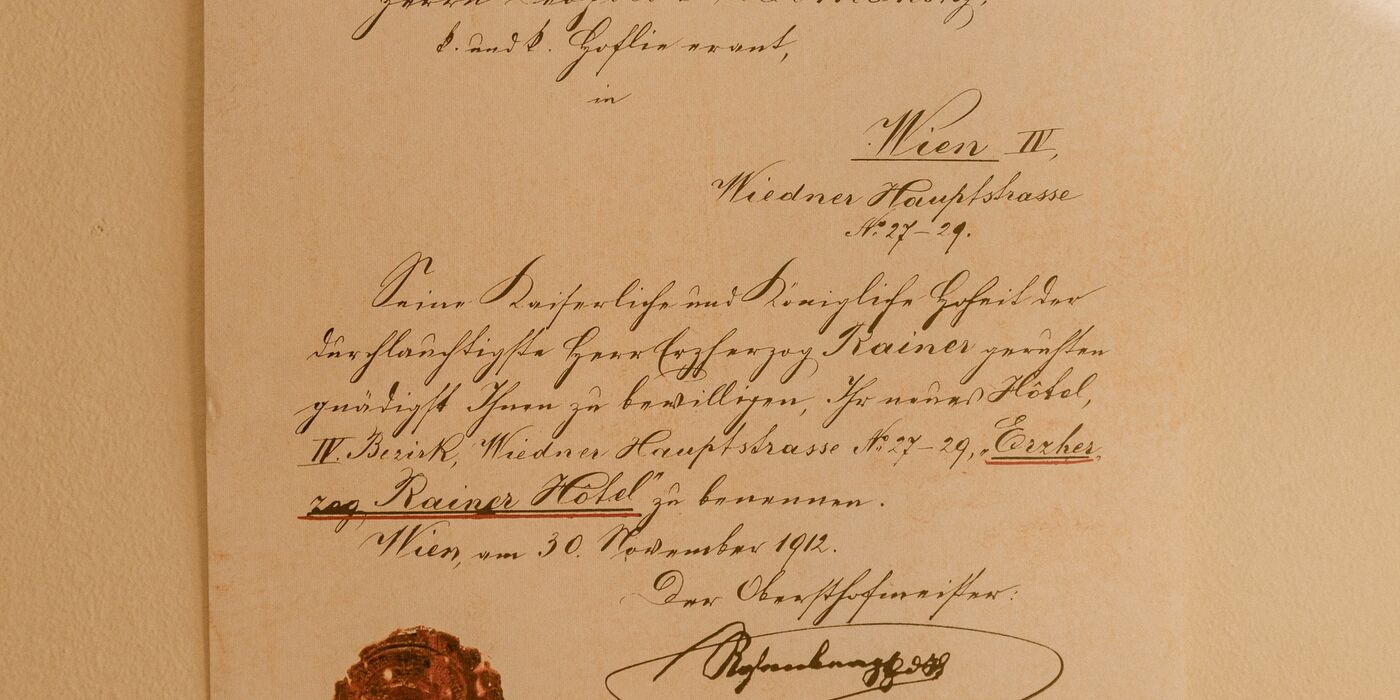 Herrn
k. und k. Hoflieferant,
in
Wien IV,
Wiedner Hauptstrasse
No. 27-29.
Seine Kaiserliche und Königliche Hoheit der
durchlauchtigste Herr Erzherzog Rainer geruhten
gnädigst Ihnen zu bewilligen, Ihr neues Hôtel,
IV. Bezirk, Wiedner Hauptstrasse No. 27-29, „Erzher-
zog Rainer Hôtel" zu benennen.
Wien, am 30. November 1912.
Der Obersthofmeister: